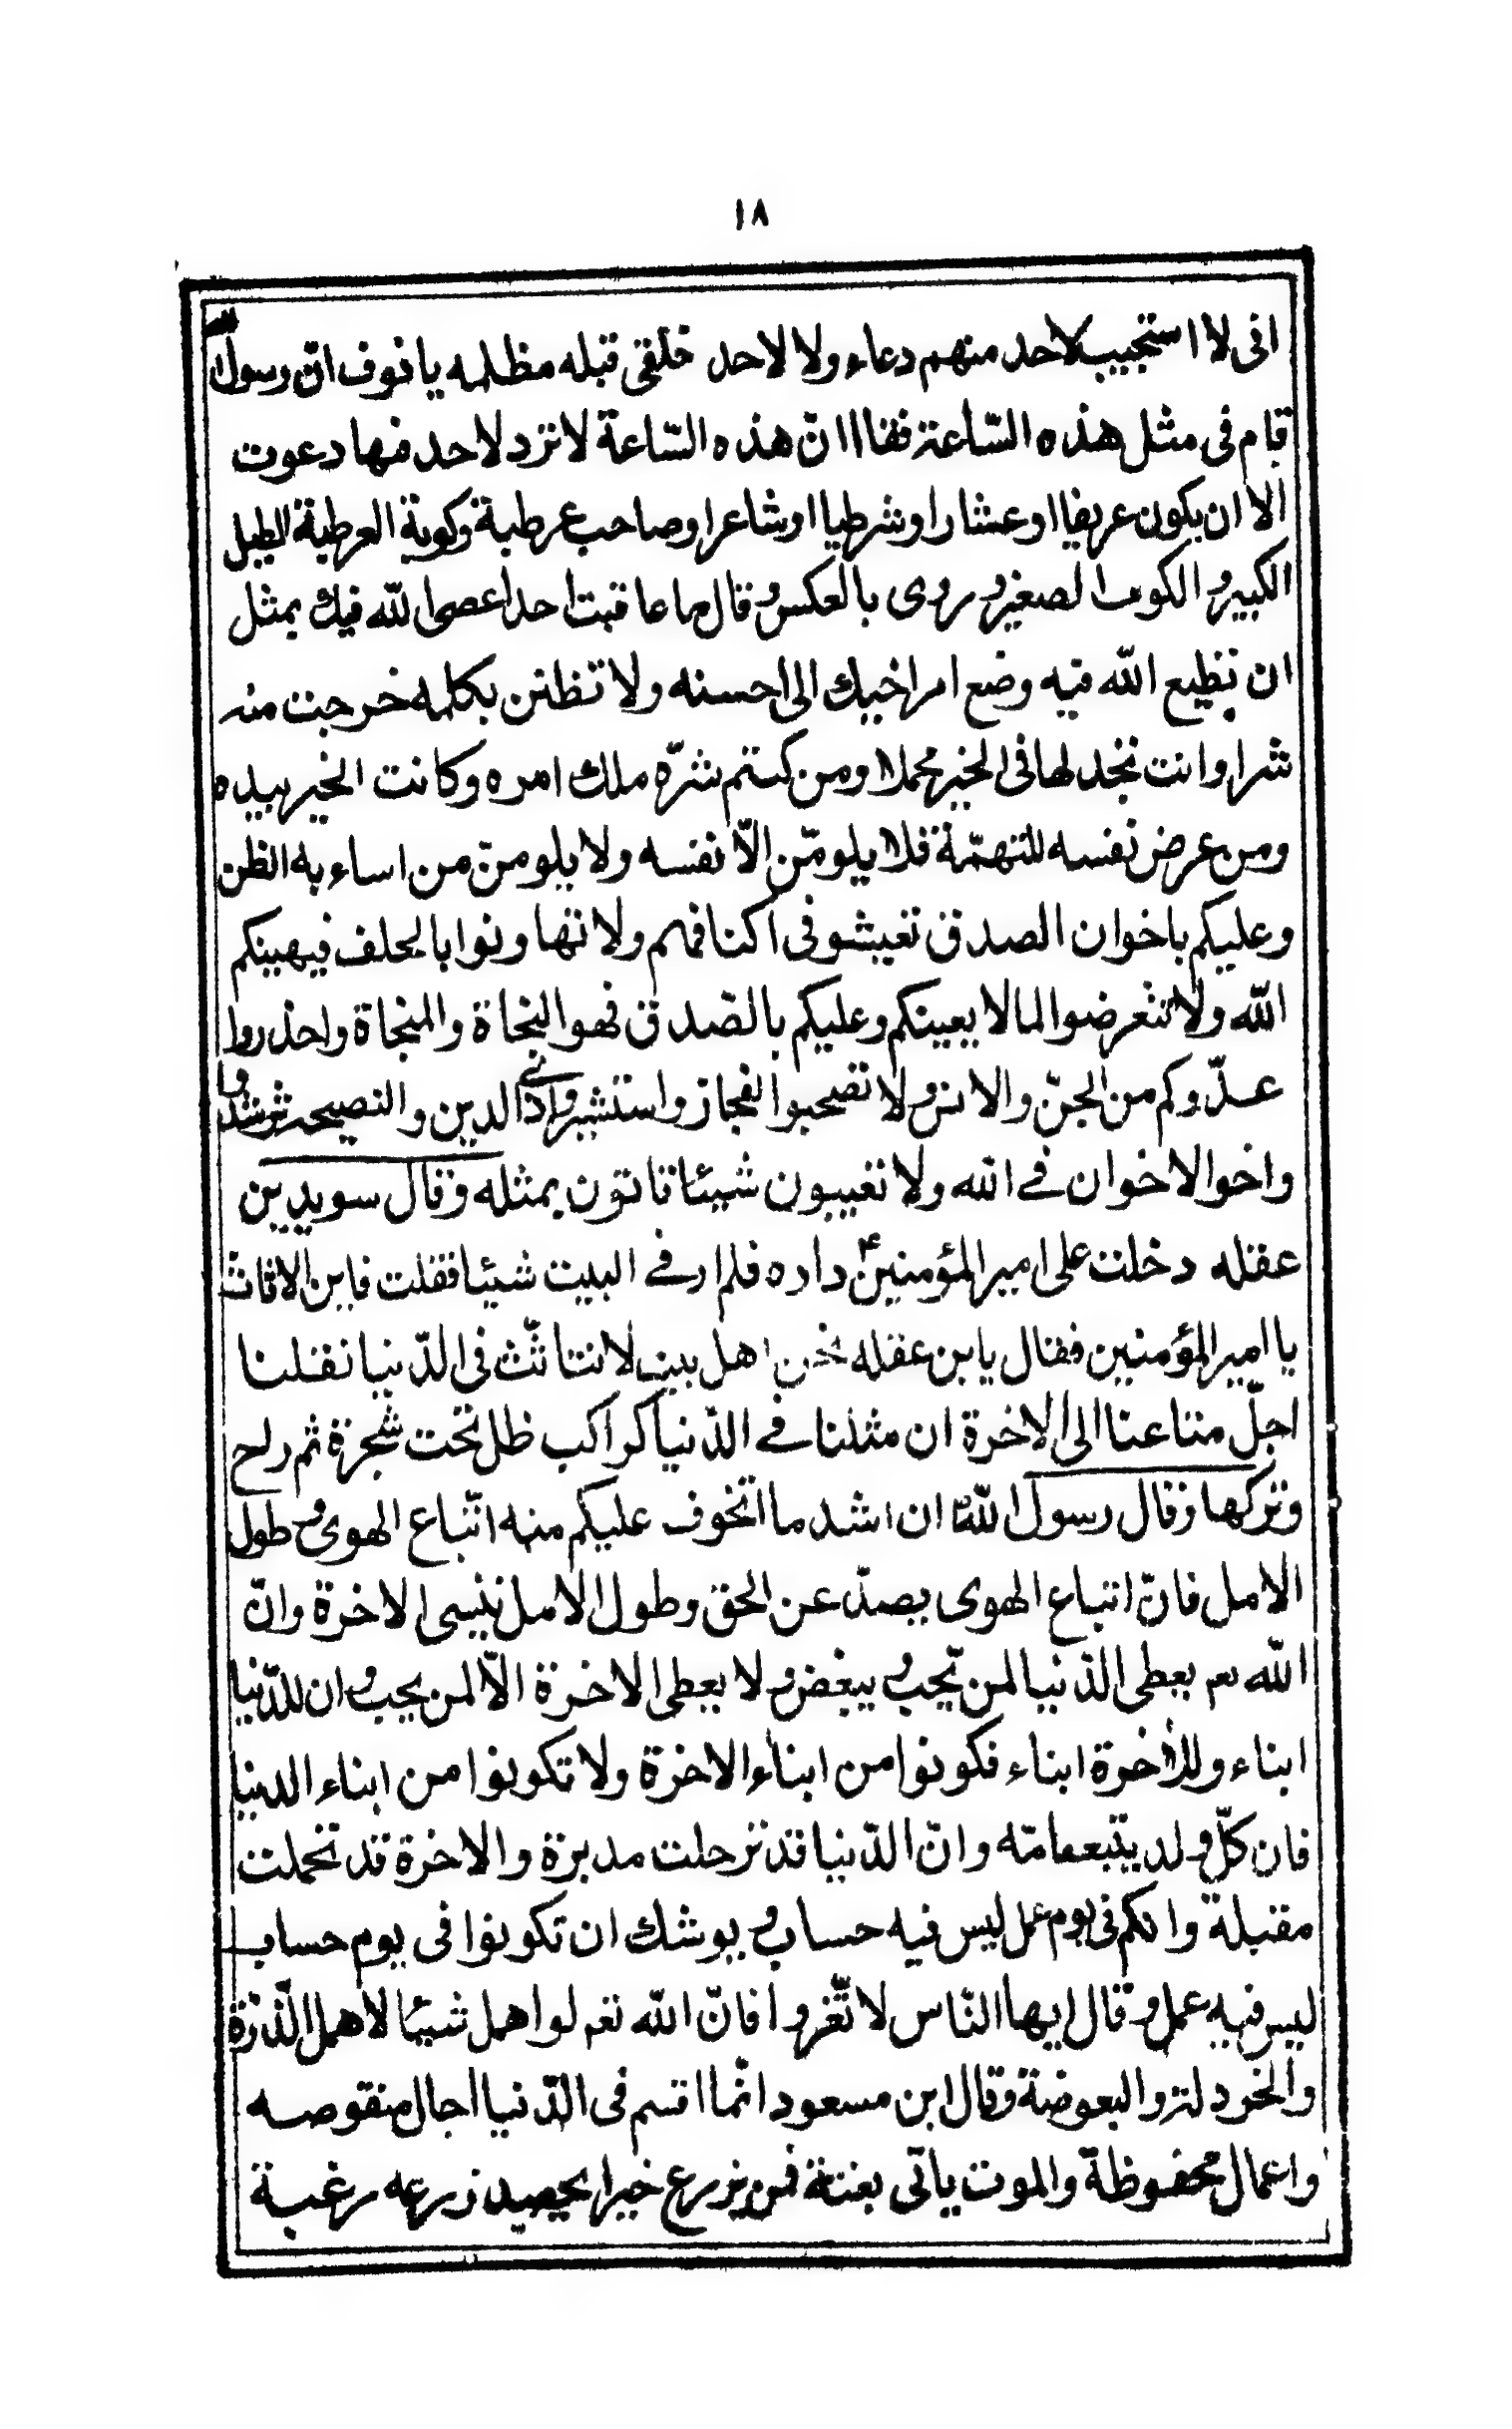 ١٨
انى لا استجيب لاحد منهم دعاء ولا لاحد خلقى قبله مظلمه يا نوف انّ رسول الله
قام فى مثل هذه السّاعة فقال انّ هذه السّاعة لا ترد لاحد فيها دعوت
الا ان يكون عريفا او عشارا وشرطيا او شاعرا وصاحب عرطبة وكوبة العرطبة الطبل
الكبير و الكوبه الصغير و روى بالعكس و قال ما عاقبت احدا عصى الله فيك بمثل
ان تطيع الله فيه وضع امر اخيك الى احسنه ولا تظنن بكلمه خرجت منه
شرا وانت تجد لها فى الخير محملا ومن كتم شرّه ملك امره وكانت الخير بيده
ومن عرض نفسه للتهمّة فلا يلومّن الّا نفسه ولا يلومنّ من اساء به الظن
وعليكم باخوان الصدق تعيشو فى اكنافهم ولا تهاونوا بالحلف فيهينكم
الله ولا تتعرضوا لما لا يعينكم وعليكم بالصّدق فهو النجاة والمنجاة واحذروا
عدّوكم من الجنّ والانس و لا تصحبوا الفجار واستشيروا ذوى الدين والنصيحة ترشدوا
واخوا الاخوان فے الله ولا تعيبون شيئا تاتون بمثله وقال سويد بن
عقله دخلت على امير المؤمنينؑ داره فلم ار فے البيت شيئا فقلت فاين الاثاث
يا امير المؤمنين فقال يا بن عقله نحن اهل بيت لا نتاثّث فى الدّنيا نقلنا
اجلّ متاعنا الى الاخرة ان مثلنا فے الدّنيا كراكب ظل تحت شجرة ثم راح
وتركها وقال رسول اللهؐ ان اشد ما اتخوف عليكم منه اتّباع الهوى و طول
الامل فانّ اتباع الهوى يصدّ عن الحق وطول الامل ينسى الاخرة وانّ
الله تعم يعطى الدّنيا لمن يّحب و يبغض و لا يعطى الاخرة الّا لمن يحب و ان للدّنيا
ابناء وللاخرة ابناء فكونوا من ابناء الاخرة ولا تكونوا من ابناء الدنيا
فان كلّ ولد يتبع بامّه وانّ الدّنيا قد ترحلت مدبرة والاخرة قد تحملت
مقبلة وانكم فى يوم عمل ليس فيه حساب و يوشك ان تكونوا فى يوم حساب
ليس فيه عمل و قال ايها النّاس لا تّغروا فانّ الله تعم لو اهمل شيئا لاهمل الّذرّة
والخردلة والبعوضة وقال ابن مسعود انّما انتم فى الدّنيا اجال منقوصه
واعمال محفوظة والموت ياتى بغتة فمن يزرع خيرا يحصيد زرعه رغبة